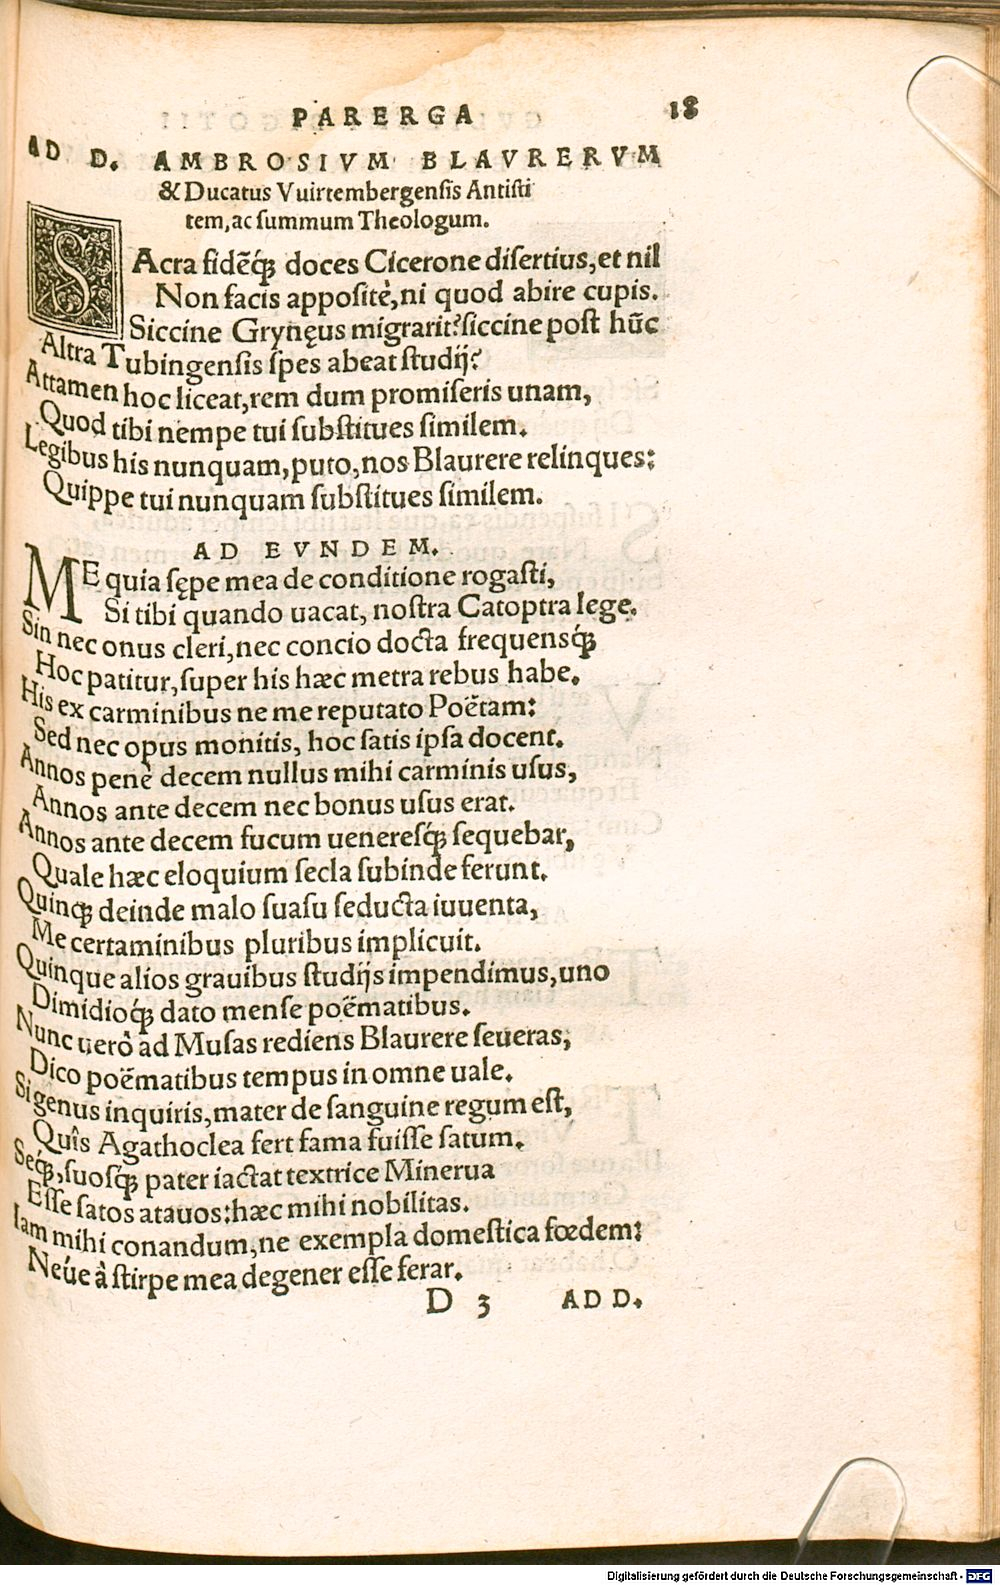 PARERGA 18
AD D. AMBROSIVM BLAVRERVM
& Ducatus Vuirtembergensis Antisti
tem, ac summum Theologum.
SAcra fidẽq́; doces Cicerone disertius, et nil
Non facis appositè, ni quod abire cupis.
Siccine Grynęus migrarit? siccine post hũc
Altra Tubingensis spes abeat studij?
Attamen hoc liceat, rem dum promiseris unam,
Quod tibi nempe tui substitues similem.
Legibus his nunquam, puto, nos Blaurere relinques:
Quippe tui nunquam substitues similem.
AD EVNDEM.
ME quia sępe mea de conditione rogasti,
Si tibi quando uacat, nostra Catoptra lege.
Sin nec onus cleri, nec concio docta frequensq́;
Hoc patitur, super his hæc metra rebus habe.
His ex carminibus ne me reputato Poëtam:
Sed nec opus monitis, hoc satis ipsa docent.
Annos penè decem nullus mihi carminis usus,
Annos ante decem nec bonus usus erat.
Annos ante decem fucum ueneresq́; sequebar,
Quale hæc eloquium secla subinde ferunt.
Quinq; deinde malo suasu seducta iuuenta,
Me certaminibus pluribus implicuit.
Quinque alios grauibus studijs impendimus, uno
Dimidioq́; dato mense poëmatibus.
Nunc uerò ad Musas rediens Blaurere seueras,
Dico poëmatibus tempus in omne uale.
Si genus inquiris, mater de sanguine regum est,
Quîs Agathoclea fert fama fuisse satum.
Seq́;, suosq́; pater iactat textrice Minerua
Esse satos atauos: hæc mihi nobilitas.
Iam mihi conandum, ne exempla domestica fœdem:
Néue à stirpe mea degener esse ferar.
D 3 AD D.
Digitalisierung gefördert durch die Deutsche Forschungsgemeinschaft - DFG